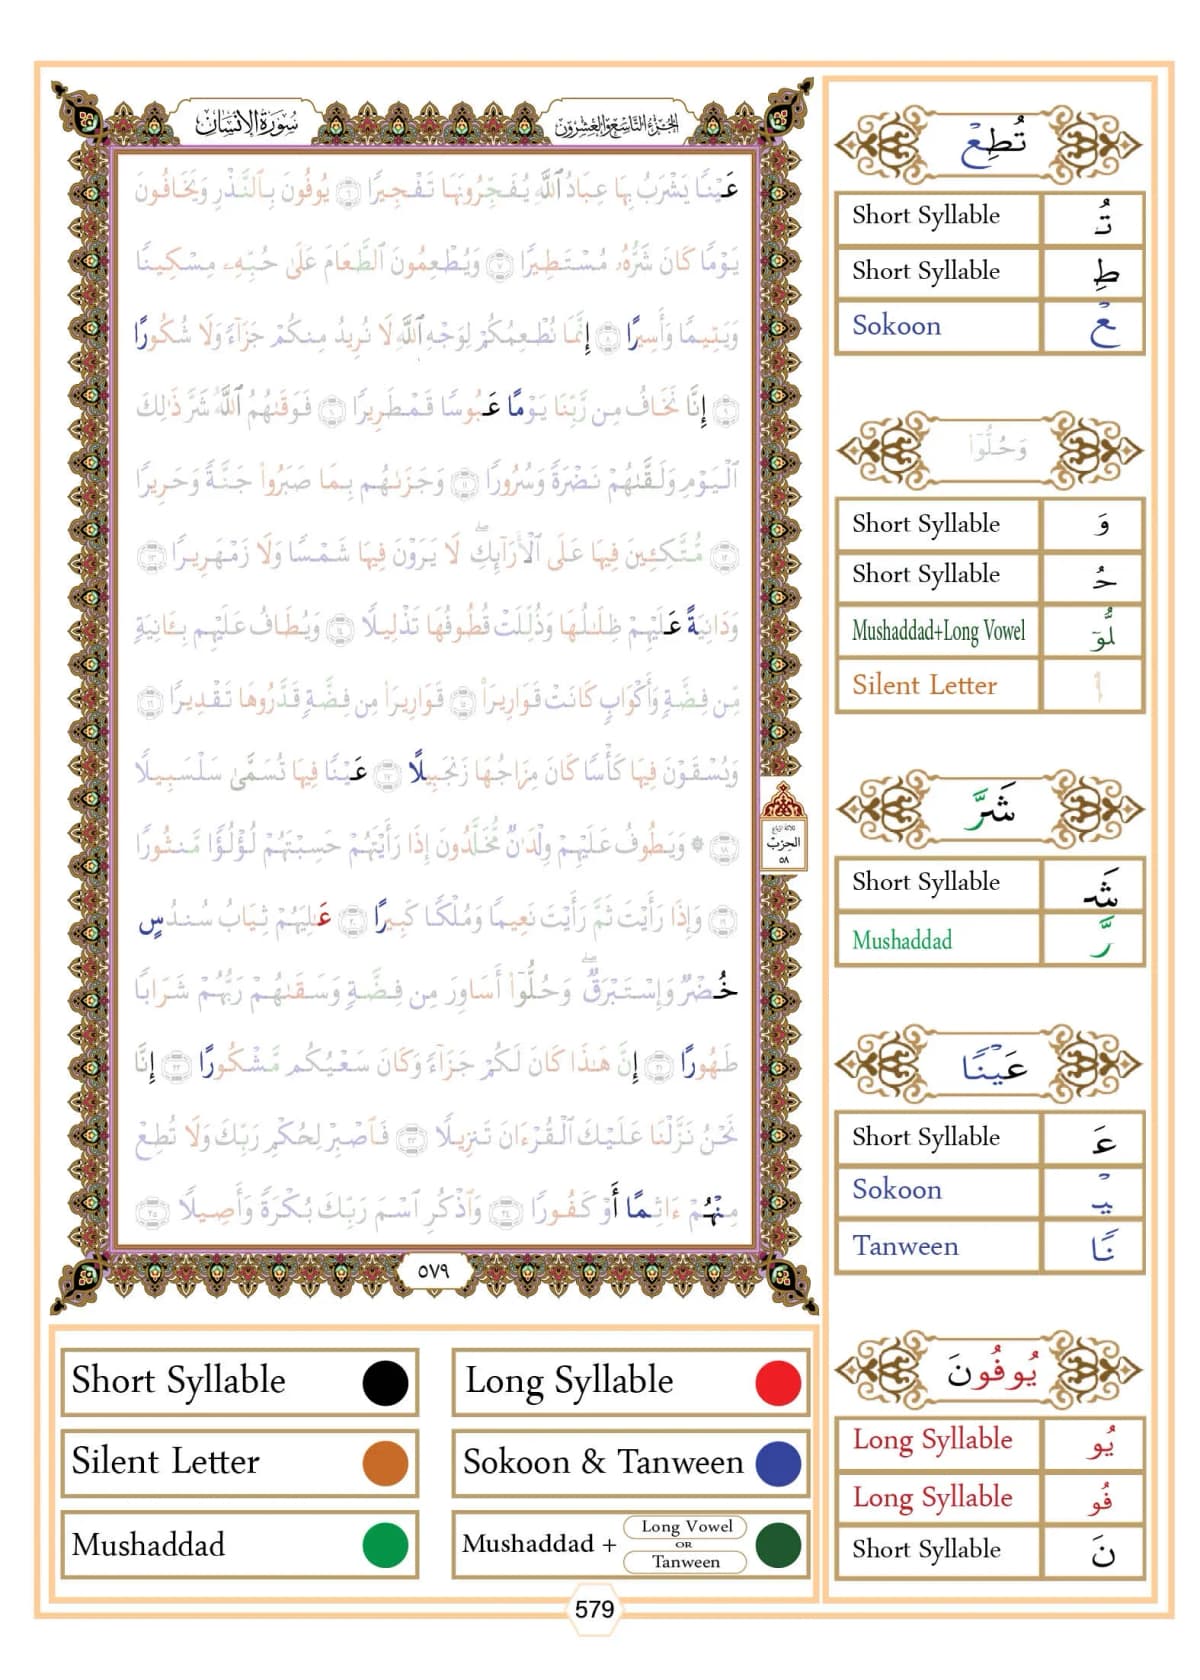 سُورَةُ الإِنسَانِ
الجُزءُ التَّاسِعُ وَالعِشرُونَ
عَيْنًا يَشْرَبُ بِهَا عِبَادُ ٱللَّهِ يُفَجِّرُونَهَا تَفْجِيرًا ٦ يُوفُونَ بِٱلنَّذْرِ وَيَخَافُونَ
يَوْمًا كَانَ شَرُّهُۥ مُسْتَطِيرًا ٧ وَيُطْعِمُونَ ٱلطَّعَامَ عَلَىٰ حُبِّهِۦ مِسْكِينًا
وَيَتِيمًا وَأَسِيرًا ٨ إِنَّمَا نُطْعِمُكُمْ لِوَجْهِ ٱللَّهِ لَا نُرِيدُ مِنكُمْ جَزَآءً وَلَا شُكُورًا
٩ إِنَّا نَخَافُ مِن رَّبِّنَا يَوْمًا عَبُوسًا قَمْطَرِيرًا ١٠ فَوَقَىٰهُمُ ٱللَّهُ شَرَّ ذَٰلِكَ
ٱلْيَوْمِ وَلَقَّىٰهُمْ نَضْرَةً وَسُرُورًا ١١ وَجَزَىٰهُم بِمَا صَبَرُوا۟ جَنَّةً وَحَرِيرًا
١٢ مُّتَّكِـِٔينَ فِيهَا عَلَى ٱلْأَرَآئِكِ ۖ لَا يَرَوْنَ فِيهَا شَمْسًا وَلَا زَمْهَرِيرًا ١٣
وَدَانِيَةً عَلَيْهِمْ ظِلَـٰلُهَا وَذُلِّلَتْ قُطُوفُهَا تَذْلِيلًا ١٤ وَيُطَافُ عَلَيْهِم بِـَٔانِيَةٍ
مِّن فِضَّةٍ وَأَكْوَابٍ كَانَتْ قَوَارِيرَا۠ ١٥ قَوَارِيرَا۟ مِن فِضَّةٍ قَدَّرُوهَا تَقْدِيرًا ١٦
وَيُسْقَوْنَ فِيهَا كَأْسًا كَانَ مِزَاجُهَا زَنجَبِيلًا ١٧ عَيْنًا فِيهَا تُسَمَّىٰ سَلْسَبِيلًا
١٨ ۞ وَيَطُوفُ عَلَيْهِمْ وِلْدَٰنٌ مُّخَلَّدُونَ إِذَا رَأَيْتَهُمْ حَسِبْتَهُمْ لُؤْلُؤًا مَّنثُورًا
١٩ وَإِذَا رَأَيْتَ ثَمَّ رَأَيْتَ نَعِيمًا وَمُلْكًا كَبِيرًا ٢٠ عَـٰلِيَهُمْ ثِيَابُ سُندُسٍ
خُضْرٌ وَإِسْتَبْرَقٌ ۖ وَحُلُّوٓا۟ أَسَاوِرَ مِن فِضَّةٍ وَسَقَىٰهُمْ رَبُّهُمْ شَرَابًا
طَهُورًا ٢١ إِنَّ هَـٰذَا كَانَ لَكُمْ جَزَآءً وَكَانَ سَعْيُكُم مَّشْكُورًا ٢٢ إِنَّا
نَحْنُ نَزَّلْنَا عَلَيْكَ ٱلْقُرْءَانَ تَنزِيلًا ٢٣ فَٱصْبِرْ لِحُكْمِ رَبِّكَ وَلَا تُطِعْ
مِنْهُمْ ءَاثِمًا أَوْ كَفُورًا ٢٤ وَٱذْكُرِ ٱسْمَ رَبِّكَ بُكْرَةً وَأَصِيلًا ٢٥
ثلاثة أرباع
الحزب
٥٨
٥٧٩
تُطِعْ
Short Syllable تُـ
Short Syllable طِ
Sokoon عْ
وَحُلُّوٓا۟
Short Syllable وَ
Short Syllable حُـ
Mushaddad+Long Vowel لُّوٓ
Silent Letter ا۟
شَرَّ
Short Syllable شَـ
Mushaddad رَّ
عَيْنًا
Short Syllable عَـ
Sokoon ـيْـ
Tanween نًا
يُوفُونَ
Long Syllable يُو
Long Syllable فُو
Short Syllable نَ
Short Syllable
Long Syllable
Silent Letter
Sokoon & Tanween
Mushaddad
Mushaddad + Long Vowel
OR
Tanween
579